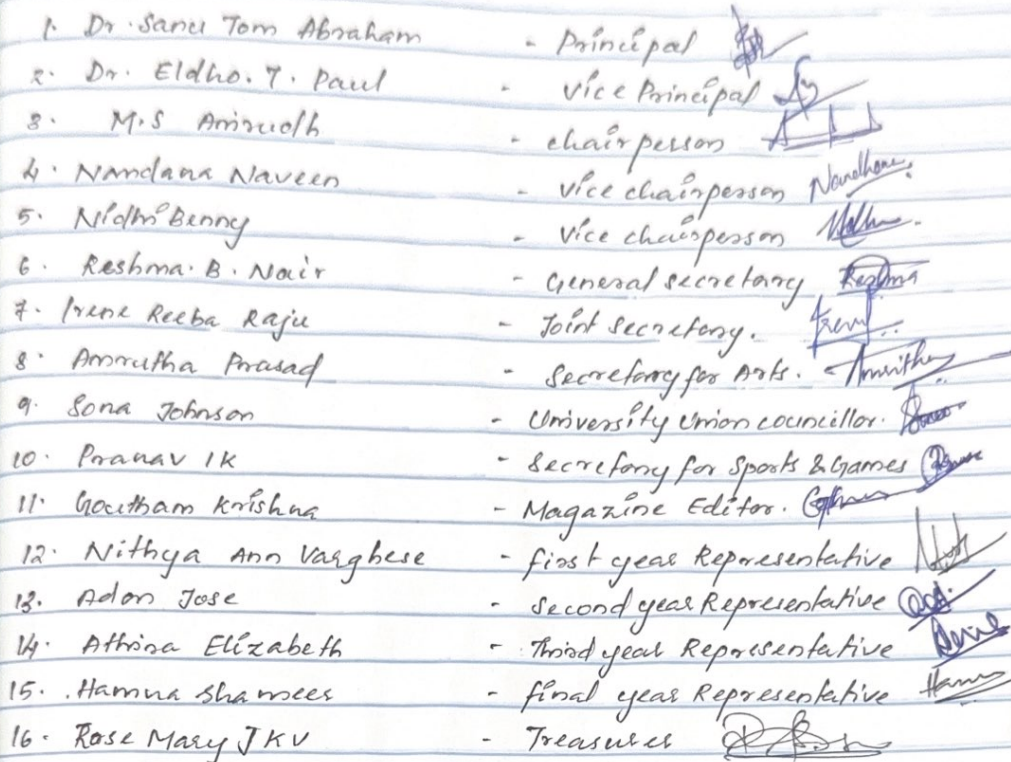 1. Dr. Sanu Tom Abraham - Principal
2. Dr. Eldho. T. Paul - Vice Principal
3. M.S Anirudh - chairperson
4. Nandana Naveen - Vice chairperson
5. Nidhi Benny - Vice chairperson
6. Reshma. B. Nair - General secretary Reshma
7. Irene Reeba Raju - Joint secretary.
8. Amrutha Prasad - Secretary for Arts.
9. Sona Johnson - University Union councillor.
10. Pranav IK - Secretary for Sports & Games
11. Goutham Krishna - Magazine Editor.
12. Nithya Ann Varghese - first year Representative
13. Adon Jose - Second year Representative
14. Athina Elizabeth - Third year Representative
15. Hamna Shamees - final year Representative
16. Rose Mary JKV - Treasurer